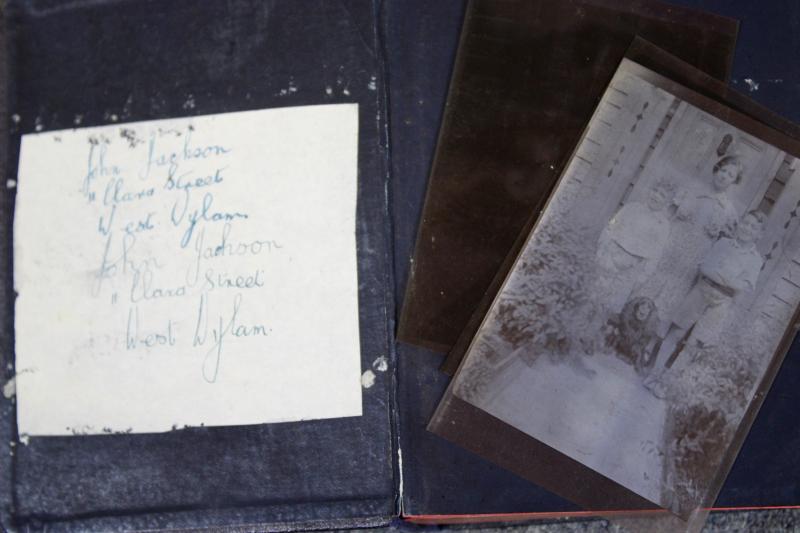 John Jackson
11 Clara Street
West Wylam.
John Jackson
11 Clara Street
West Wylam.